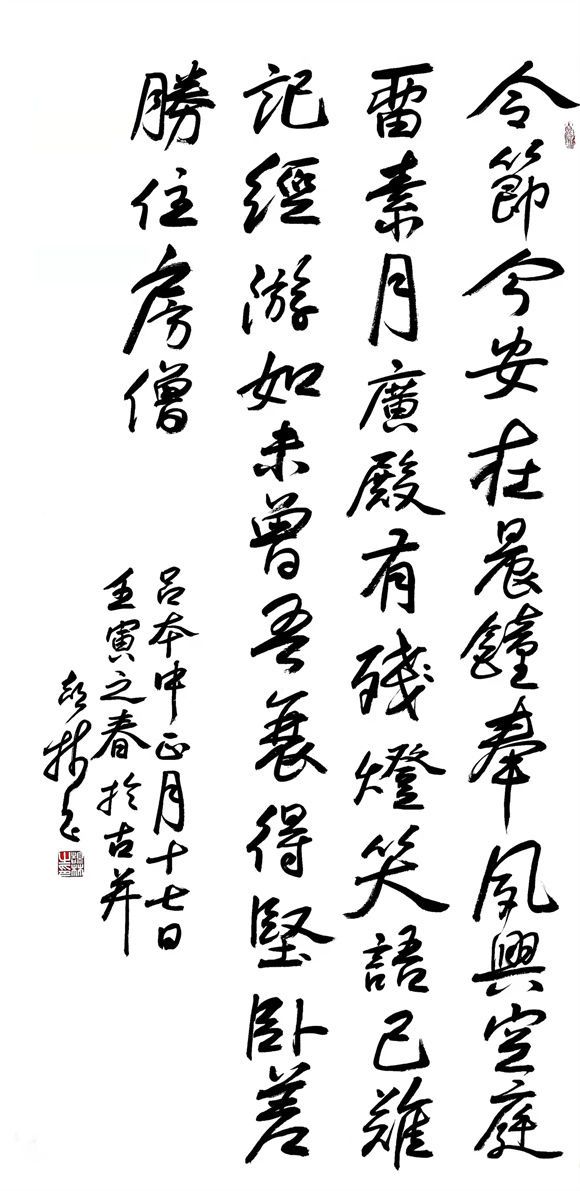 令節今安在晨鐘奉夙興空庭
畱素月廣殿有殘燈笑語已難
記經游如未曾吾衰得堅臥差
勝住房僧
呂本中正月十七日
壬寅之春於古并